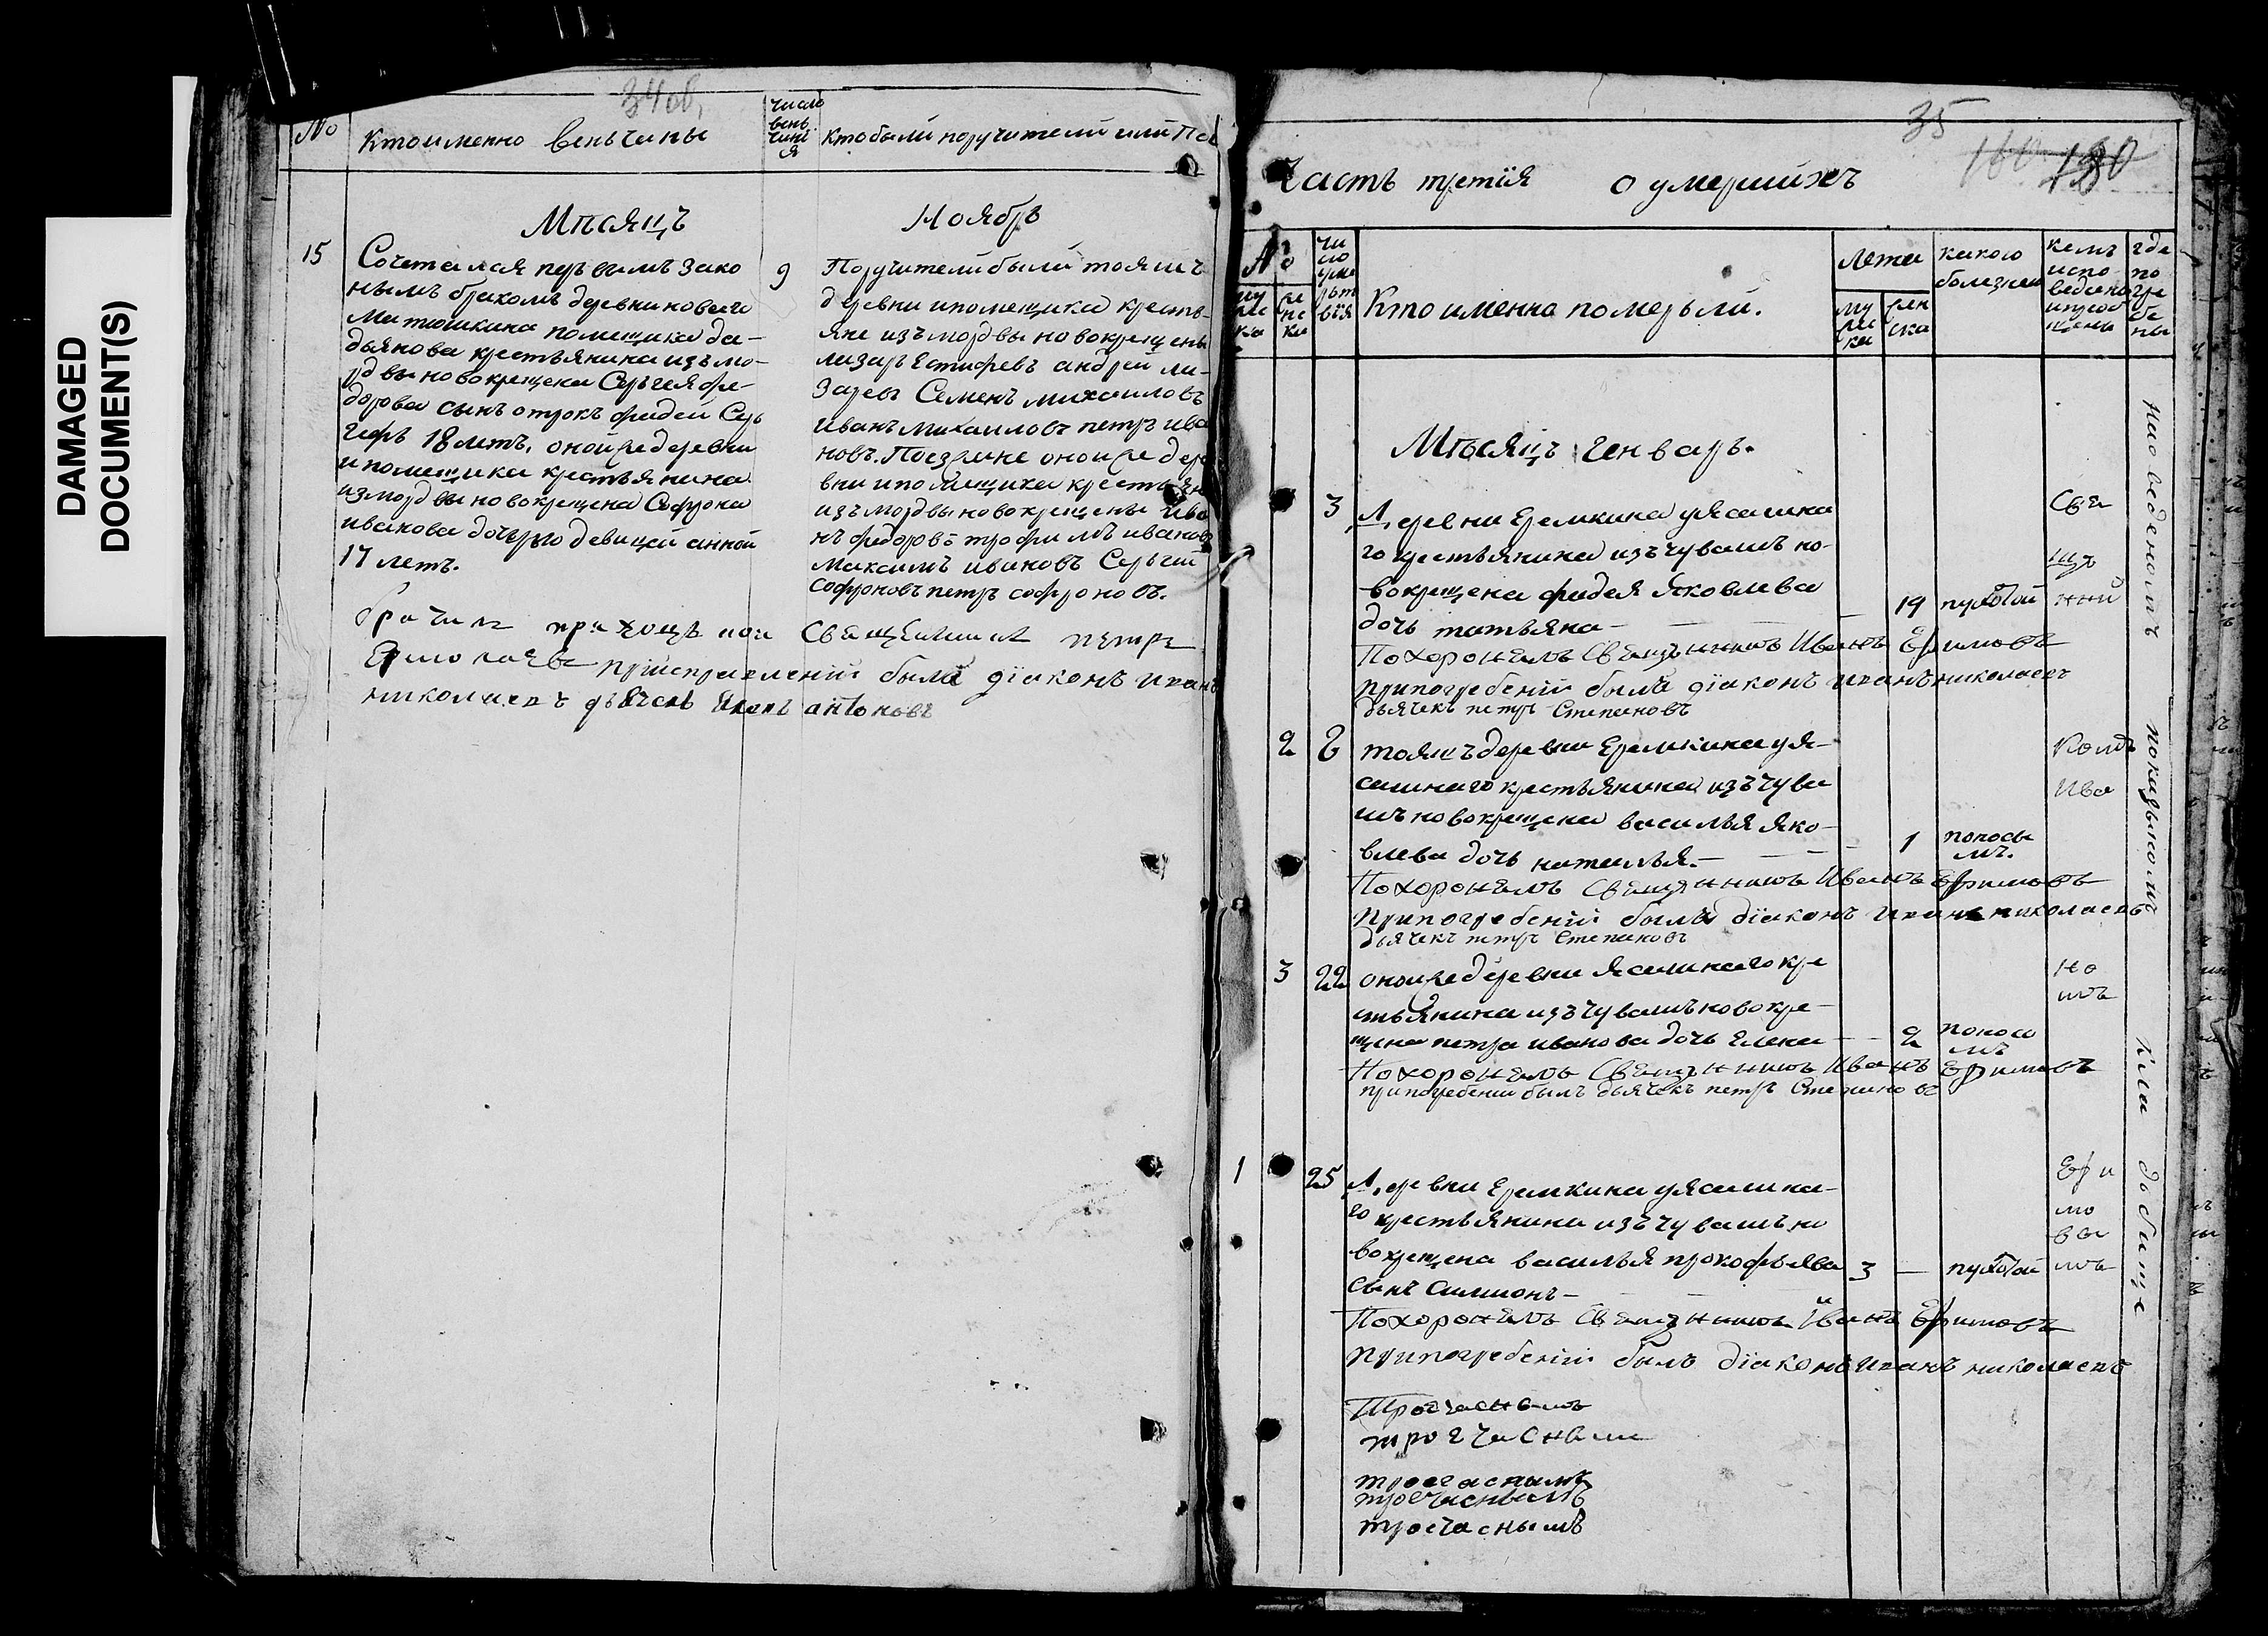 DAMAGED
DOCUMENT(S)
34об.
No
Кто именно веньчаны
число
вень
чані
я
Кто были поручители или По
Мѣсяцъ Ноябрь
15
Сочетался первымъ зако
ннымъ бракомъ деревни новаго
Матюшкина помещика да-
дьянова крестьянина изъ мо-
рдвы новокрещена Сергея фе-
дорова сынъ отрокъ фадей Сер
геевъ 18 летъ. оной же деревни
и помещика крестьянина
из мордвы новокрещена Софрона
иванова дочерью девицей анной
17 летъ.
9
Поручители были тояжъ
деревни и помещика кресть-
яне изъ мордвы новокрещены
лизаръ Естифеевъ андрей ли-
заревъ Семенъ михаиловъ
иванъ михаиловъ петръ ива
новъ. Поезжане оной же дере
вни и помещика крестьяне
изъ мордвы новокрещены ива
нъ федоровъ трофимъ ивановъ
максимъ ивановъ Сергей
софроновъ петръ софроновъ.
Священникъ петръ
Ермолаевъ при исправлении былъ діаконъ иванъ
николаевъ дьячекъ антоновъ
35
160 130
Часть третія о умершихъ
No
му
жес
ка
же
нс
ка
чи
сло
уме
рьт
вія
Кто именна померьли.
лета
му
жес
ка
жен
ска
какою
болезнею
кемъ
испо
ведана
и приоб
щены
где
по
гре
бе
ны
Мѣсяцъ генварь.
3
Деревни Еремкина ясашна
го крестьянина изъ чувашъ но-
вокрещена фадея яковлева
дочь татьяна —
19
Похоронелъ Свещенникъ Иванъ Ефимовъ
при погребеній былъ діаконъ иванъ николаевъ
дьячекъ петръ Степановъ
Све
ще
нни
2
тояжъ деревни Еремкина я-
сашнаго крестьянина изъ чува
шъ новокрещена василья яко-
влева дочь наталья. —
1
поносо
мъ.
Похоронелъ Свещенникъ Иванъ Ефимовъ
при погребеній былъ діаконъ иванъ николаевъ
дьячекъ петръ Степановъ
комъ
Ива
3
22
оной же деревни ясашнаго кре
стьянина изъ чувашъ новокре-
щена петра иванова дочь Елена —
2
поносо
мъ
Похоронелъ Свещенникъ Иванъ Ефимовъ
при погребении былъ дьячекъ петръ Степановъ
но
мъ
1
25
Деревни Еремкина ясашна-
го крестьянина изъ чувашъ но
вокрещена василья прокофьева
сынъ Симионъ —
3
—
Похоронелъ Свещенникъ Иванъ Ефимовъ
при погребеній былъ діаконъ иванъ николаевъ
Ефи
мо
вы
мъ
На отведеномъ показномъ кладбище
Троечаснымъ
троечасными
троечаснымъ
троечаснымъ
троечаснымъ